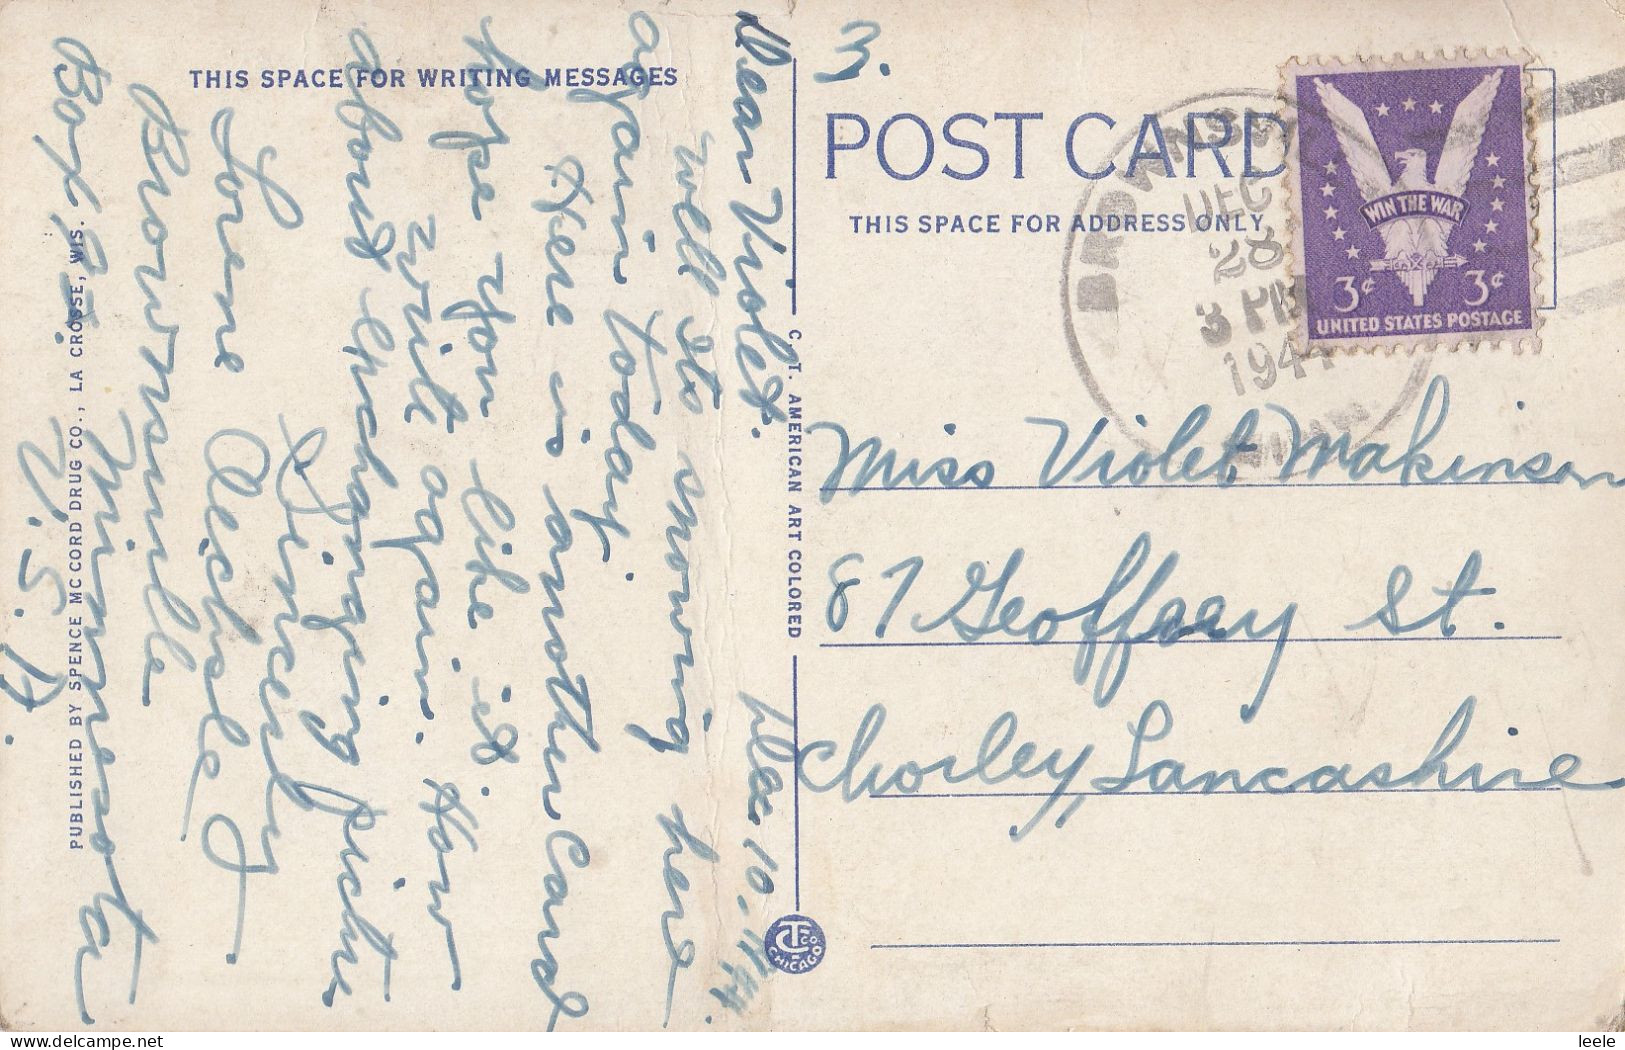 THIS SPACE FOR WRITING MESSAGES
3.
POST CARD
THIS SPACE FOR ADDRESS ONLY
BROWNSV
DEC
28
3 PM
1944
MINN.
WIN THE WAR
3¢ 3¢
UNITED STATES POSTAGE
Dec 10-1944.
Dear Violet.
Well its snowing here
again today.
Here is another Card
hope you like it.
write again. How
about exchanging picture
Sincerely
Lorene Aechsle
Brownsville
Box 82. Minnesota
U.S.A.
Miss Violet Makinson
87 Geoffrey St.
Chorley, Lancashire
C. T. AMERICAN ART COLORED
C.T. CO. CHICAGO
PUBLISHED BY SPENCE MC CORD DRUG CO., LA CROSSE, WIS.
delcampe.net
leele